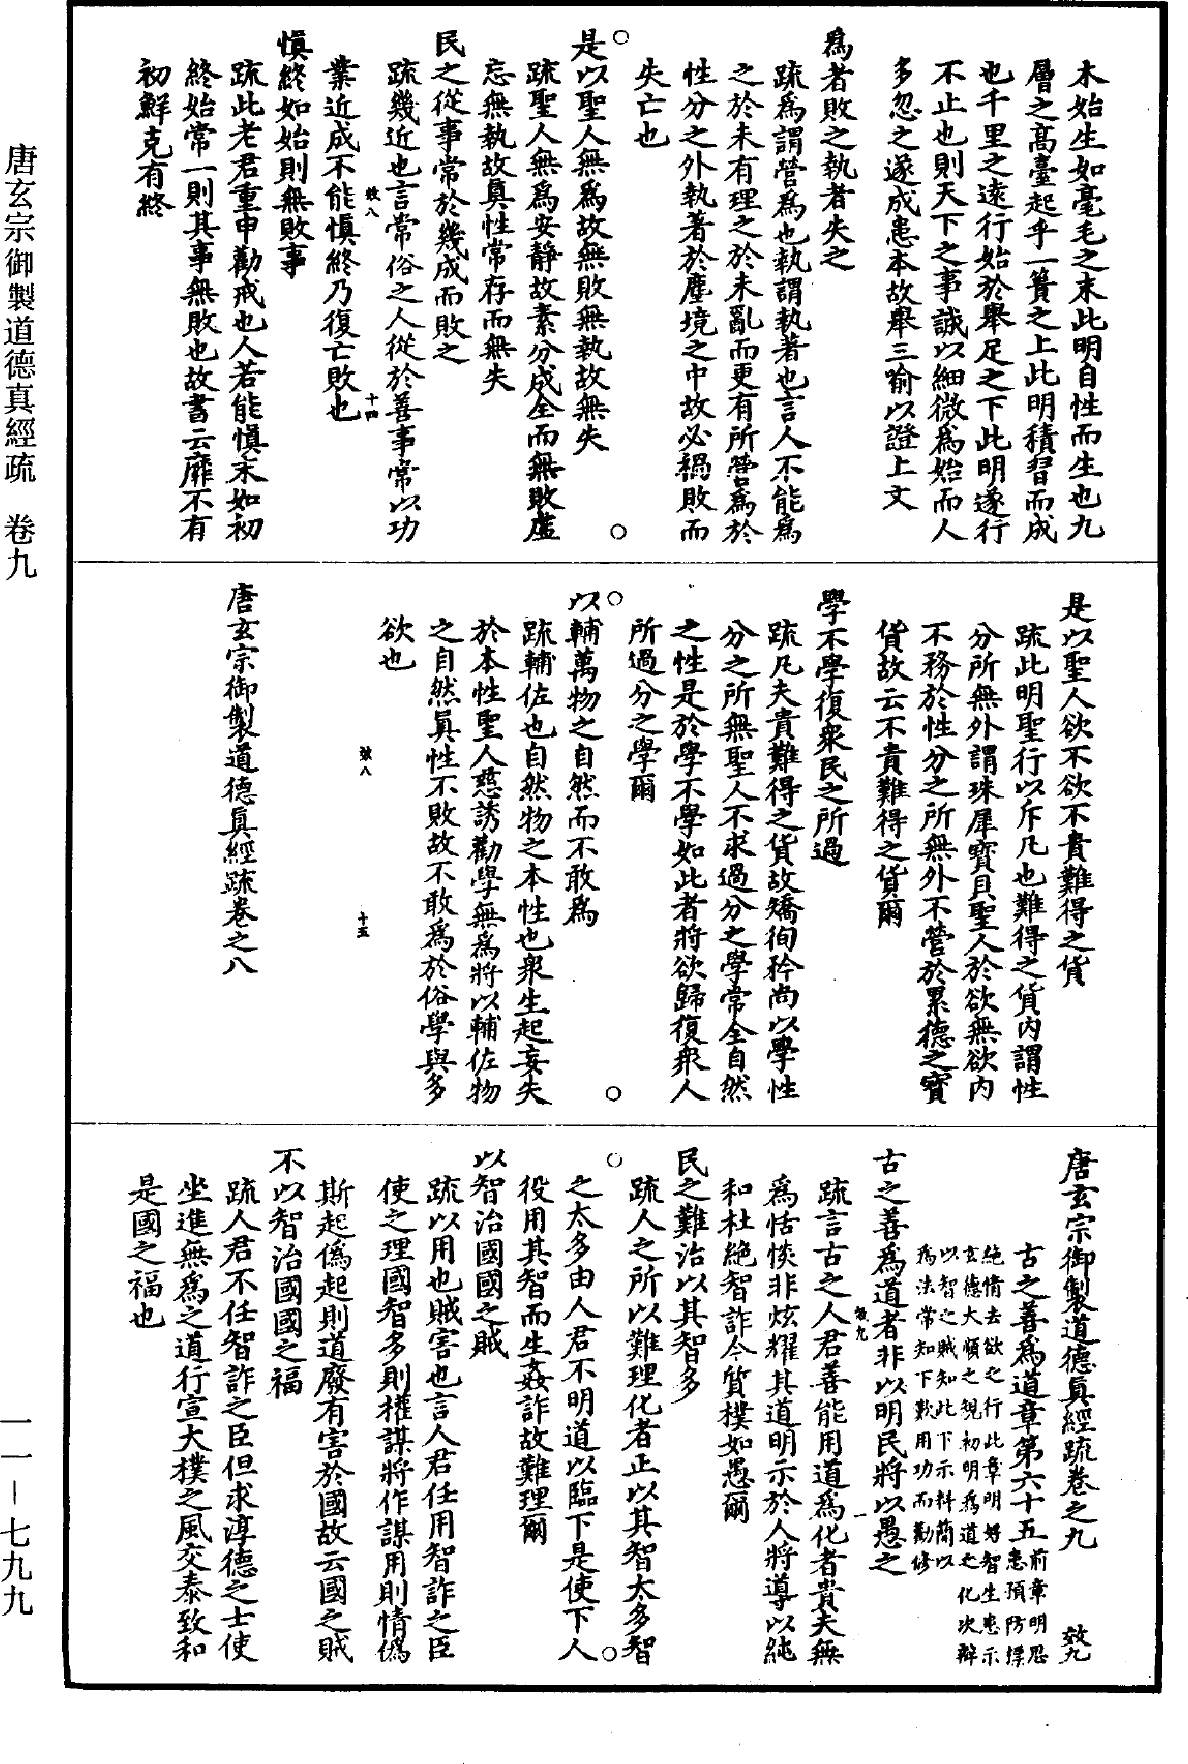 木始生如毫毛之末此明自性而生也九
層之高臺起乎一簣之上此明積習而成
也千里之遠行始於舉足之下此明遂行
不止也則天下之事誠以細微爲始而人
多忽之遂成患本故舉三喻以證上文
爲者敗之執者失之
疏爲謂營爲也執謂執著也言人不能爲
之於未有理之於未亂而更有所營爲於
性分之外執著於塵境之中故必禍敗而
失亡也
是以聖人無爲故無敗無執故無失
疏聖人無爲安靜故素分成全而無敗虛
忘無執故真性常存而無失
民之從事常於幾成而敗之
疏幾近也言常俗之人從於善事常以功
效八 十四
業近成不能慎終乃復亡敗也
慎終如始則無敗事
疏此老君重申勸戒也人若能慎末如初
終始常一則其事無敗也故書云靡不有
初鮮克有終
是以聖人欲不欲不貴難得之貨
疏此明聖行以斥凡也難得之貨內謂性
分所無外謂珠犀寶貝聖人於欲無欲內
不務於性分之所無外不營於累德之寶
貨故云不貴難得之貨爾
學不學復衆民之所過
疏凡夫貴難得之貨故矯徇矜尚以學性
分之所無聖人不求過分之學常全自然
之性是於學不學如此者將欲歸復衆人
所過分之學爾
以輔萬物之自然而不敢爲
疏輔佐也自然物之本性也衆生起妄失
於本性聖人慈誘勸學無爲將以輔佐物
之自然真性不敗故不敢爲於俗學與多
欲也
效八 十五
唐玄宗御製道德真經疏卷之八
唐玄宗御製道德真經疏卷之九 效九
古之善爲道章第六十五 前章明思患預防標
絕情去欲之行此章明好智生患示
玄德大順之規初明爲道之化次辯
以智之賊知此下示料簡以
爲法常知下歎用功而勸修
古之善爲道者非以明民將以愚之
效九 一
疏言古之人君善能用道爲化者貴夫無
爲恬惔非炫耀其道明示於人將導以純
和杜絕智詐令質樸如愚爾
民之難治以其智多
疏人之所以難理化者正以其智太多智
之太多由人君不明道以臨下是使下人
役用其智而生姦詐故難理爾
以智治國國之賊
疏以用也賊害也言人君任用智詐之臣
使之理國智多則權謀將作謀用則情僞
斯起僞起則道廢有害於國故云國之賊
不以智治國國之福
疏人君不任智詐之臣但求淳德之士使
坐進無爲之道行宣大樸之風交泰致和
是國之福也
唐玄宗御製道德真經疏 卷九
一一－七九九